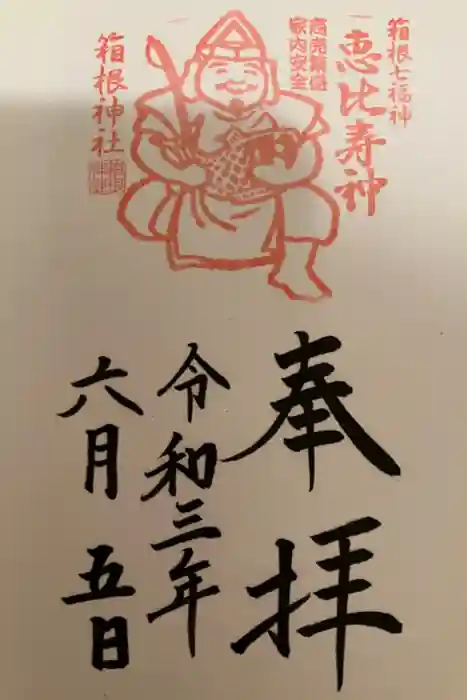 箱根七福神
恵比寿神
商売繁盛
家内安全
箱根神社
奉拝
令和三年
六月五日